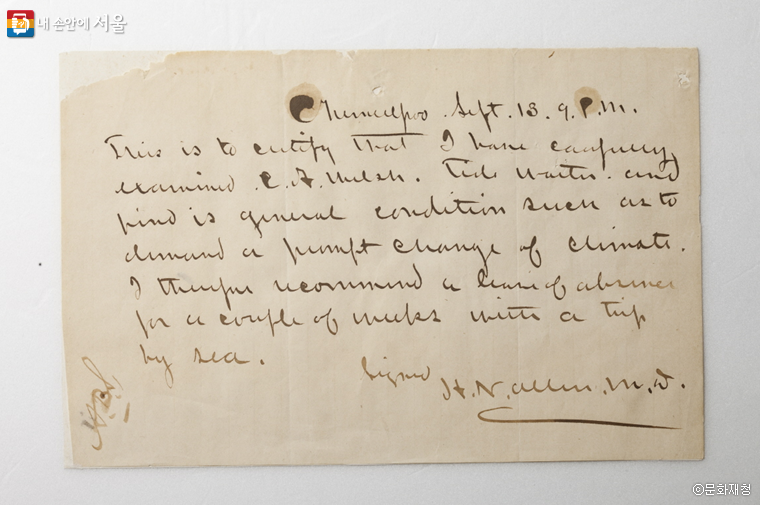 내 손안에 서울
Chemulpoo. Sept. 13. 9. P.M.
This is to certify that I have carefully
examined C. A. Welsh. Tide Waiter. and
find is general condition such as to
demand a prompt change of climate.
I therefore recommend a leave of absence
for a couple of weeks with a trip
by sea.
Signed
H. N. Allen. M. D.
©문화재청